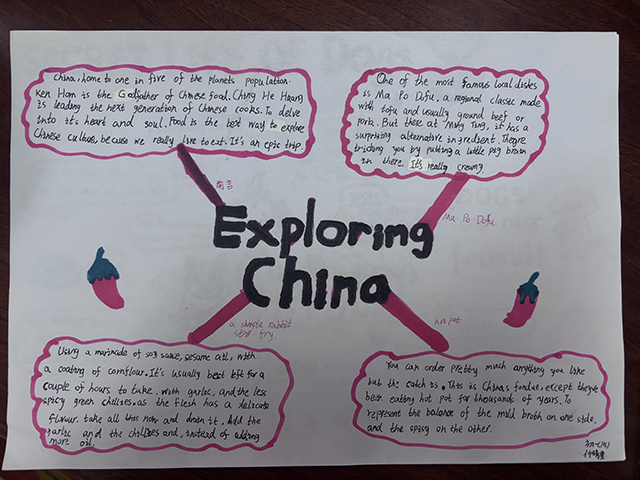 China, home to one in five of the planets population.
Ken Hom is the Godfather of Chinese food. Ching He Huang
is leading the next generation of Chinese cooks. To delve
into it's heart and soul. Food is the best way to explore
Chinese culture, because we really live to eat. It's an epic trip.
前言
One of the most famous local dishs
is Ma Po Dofu, a regional classic made
with tofu and usually ground beef or
pork. But there at Ming Ting, it has a
surprising alternative ingredient. Theyre
tricking you by putting a little pig brain
in there. It's really creamy.
Ma Po Dofu.
Exploring
China
a simple rabbit
stir fry
hot pot
Using a marinade of soy sauce, sesame oil, with
a coating of cornflour. It's usually best left for a
couple of hours to take. With garlic, and the less
spicy green chillies. as the flesh has a delicate
flavour. take all this now and drain it. Add the
garlic and the chillies and, instead of adding
more oil.
You can order pretty much anything you like
but the catch is. This is China's fondue, except they've
been eating hot pot for thousands of years. To
represent the balance of the mild broth on one side,
and the spicy on the other.